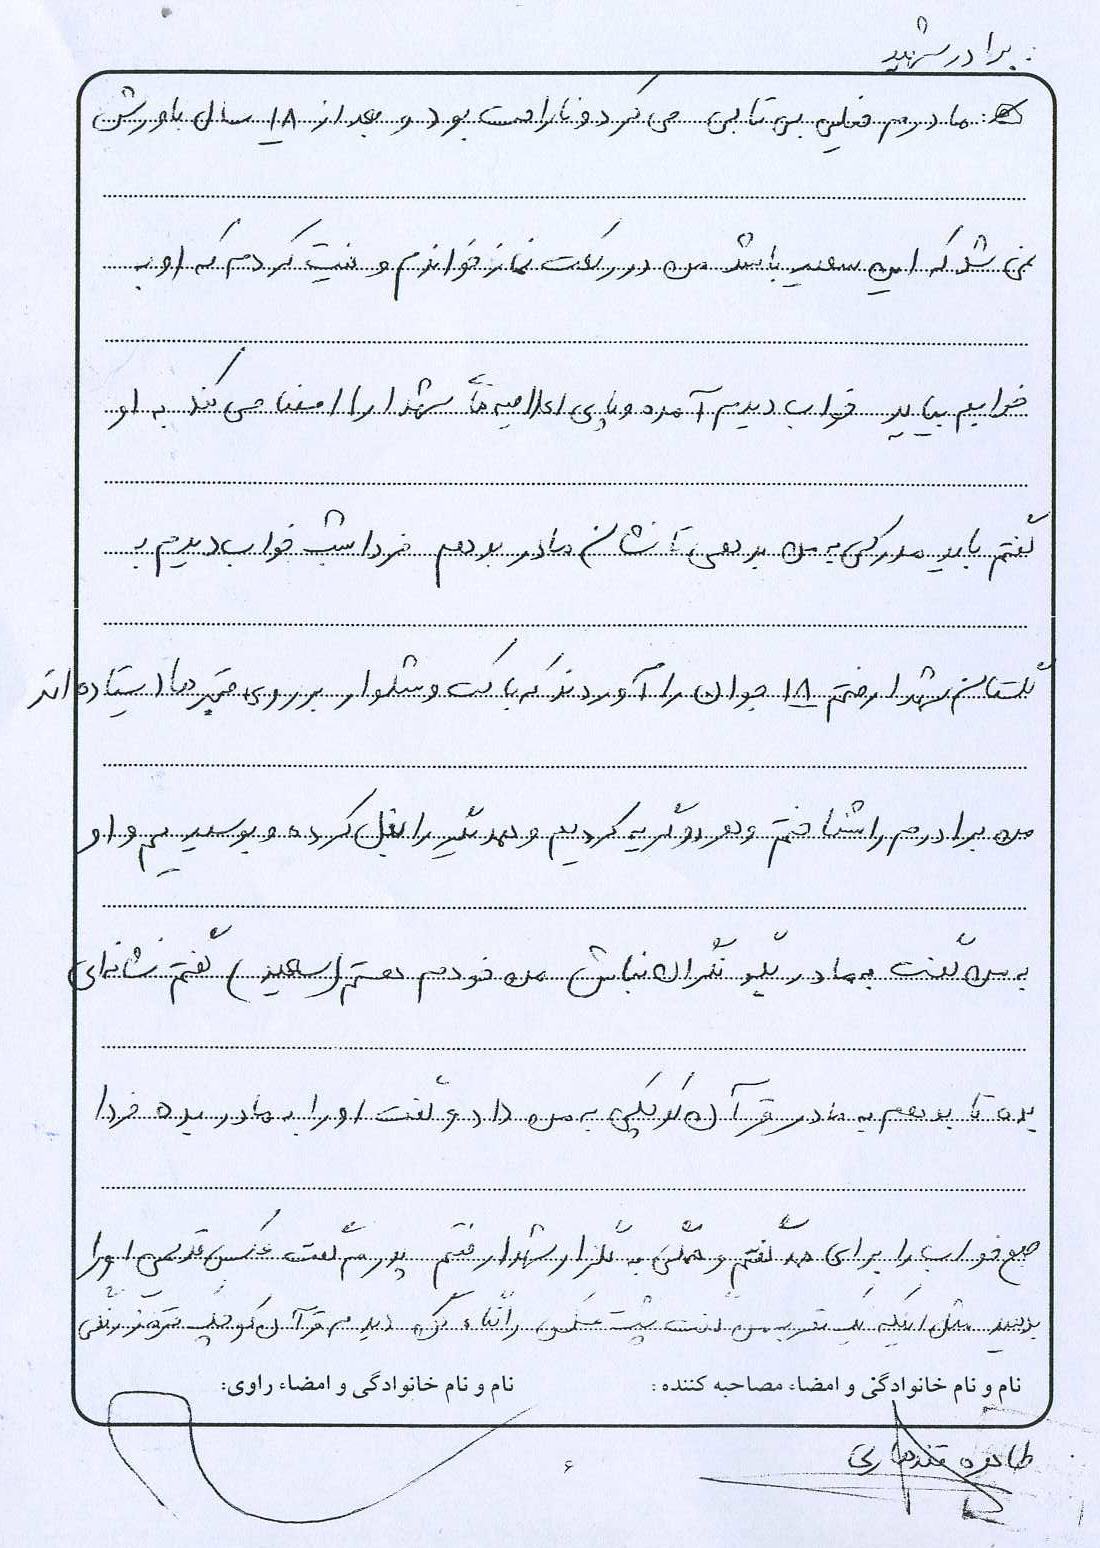 برادر شهید
: مادرم خیلی بی تابی می کرد و ناراحت بود و بعد از ۱۸ سال باورش
نمی شد که این سعید باشد من دو رکعت نماز خواندم و نیت کردم که او به
خوابم بیاید خواب دیدم آمده و پای اعلامیه شهدا را امضا می کند به او
گفتم باید مدرکی به من بدهی تا نشان مادر بدهم فردا شب خواب دیدم به
گلستان شهدا رفتم ۱۸ جوان را آوردند که با کت و شلوار بر روی قبرها ایستاده اند
من برادرم را شناختم و هر دو گریه کردیم و همدیگر را بغل کرده و بوسیدیم و او
به من گفت به مادر بگو نگران نباش من خودم هستم (سعید) گفتم نشانه ای
بده تا بدهم به مادر قرآن کوچکی به من داد و گفت او را به مادر بده فردا
صبح خواب را برای همه گفتم و همگی به گلزار شهدا رفتیم پدرم گفت عکس قدیمی او را
بدهید مثل اینکه یک نفر به من گفت پشت عکس را نگاه کن دیدم قرآن کوچک قرمز رنگی
نام و نام خانوادگی و امضاء مصاحبه کننده : نام و نام خانوادگی و امضاء راوی:
طاهره قندهاری
۶